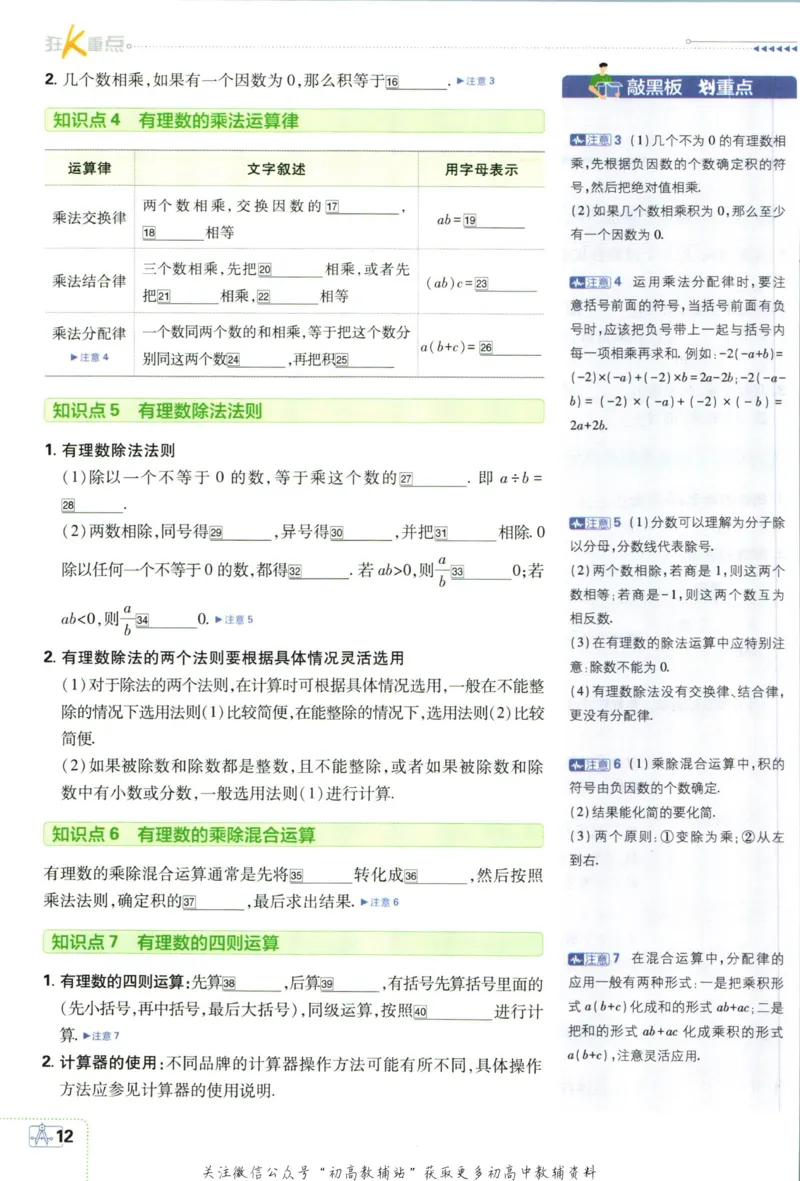 狂K重点
2. 几个数相乘,如果有一个因数为0,那么积等于16______. ▶注意3
知识点4 有理数的乘法运算律
运算律 文字叙述 用字母表示
乘法交换律 两个数相乘,交换因数的17______, 18______相等 ab=19______
乘法结合律 三个数相乘,先把20______相乘,或者先把21______相乘,22______相等 (ab)c=23______
乘法分配律 ▶注意4 一个数同两个数的和相乘,等于把这个数分别同这两个数24______,再把积25______ a(b+c)=26______
知识点5 有理数除法法则
1. 有理数除法法则
(1)除以一个不等于0的数,等于乘这个数的27______. 即a÷b=
28______.
(2)两数相除,同号得29______,异号得30______,并把31______相除. 0
除以任何一个不等于0的数,都得32______. 若ab>0,则a/b 33______0;若
ab<0,则a/b 34______0. ▶注意5
2. 有理数除法的两个法则要根据具体情况灵活选用
(1)对于除法的两个法则,在计算时可根据具体情况选用,一般在不能整
除的情况下选用法则(1)比较简便,在能整除的情况下,选用法则(2)比较
简便.
(2)如果被除数和除数都是整数,且不能整除,或者如果被除数和除
数中有小数或分数,一般选用法则(1)进行计算.
知识点6 有理数的乘除混合运算
有理数的乘除混合运算通常是先将35______转化成36______,然后按照
乘法法则,确定积的37______,最后求出结果. ▶注意6
知识点7 有理数的四则运算
1. 有理数的四则运算:先算38______,后算39______,有括号先算括号里面的
(先小括号,再中括号,最后大括号),同级运算,按照40______进行计
算. ▶注意7
2. 计算器的使用:不同品牌的计算器操作方法可能有所不同,具体操作
方法应参见计算器的使用说明.
敲黑板 划重点
注意3 (1)几个不为0的有理数相
乘,先根据负因数的个数确定积的符
号,然后把绝对值相乘.
(2)如果几个数相乘积为0,那么至少
有一个因数为0.
注意4 运用乘法分配律时,要注
意括号前面的符号,当括号前面有负
号时,应该把负号带上一起与括号内
每一项相乘再求和. 例如:-2(-a+b)=
(-2)×(-a)+(-2)×b=2a-2b;-2(-a-
b)=(-2)×(-a)+(-2)×(-b)=
2a+2b.
注意5 (1)分数可以理解为分子除
以分母,分数线代表除号.
(2)两个数相除,若商是1,则这两个
数相等;若商是-1,则这两个数互为
相反数.
(3)在有理数的除法运算中应特别注
意:除数不能为0.
(4)有理数除法没有交换律、结合律,
更没有分配律.
注意6 (1)乘除混合运算中,积的
符号由负因数的个数确定.
(2)结果能化简的要化简.
(3)两个原则:①变除为乘;②从左
到右.
注意7 在混合运算中,分配律的
应用一般有两种形式:一是把乘积形
式a(b+c)化成和的形式ab+ac;二是
把和的形式ab+ac化成乘积的形式
a(b+c),注意灵活应用.
12
关注微信公众号“初高教辅站”获取更多初高中教辅资料